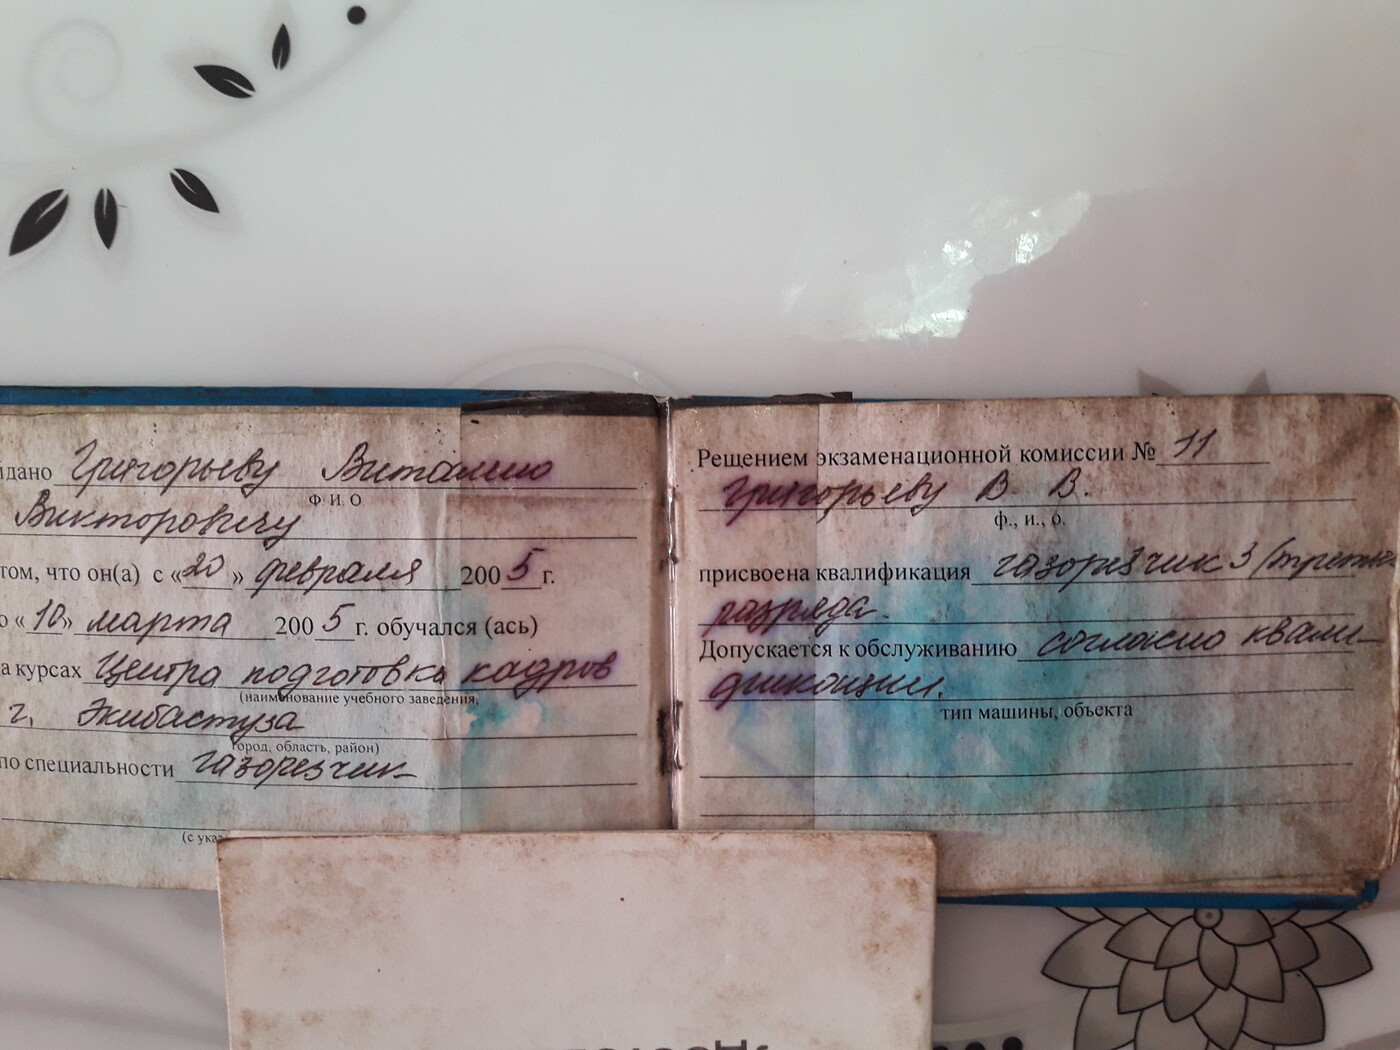 дано Григорьеву Виталию
Ф И О
Викторовичу
том, что он(а) с «20» февраля 2005 г.
о «10» марта 2005 г. обучался (ась)
а курсах Центра подготовка кадров
(наименование учебного заведения,
г. Экибастуза
город, область, район)
по специальности газорезчик
(с указ
Рещением экзаменационной комиссии № 11
Григорьеву В. В.
ф., и., о.
присвоена квалификация газорезчик 3 (третье
разряда.
Допускается к обслуживанию согласно квали-
фикации.
тип машины, объекта